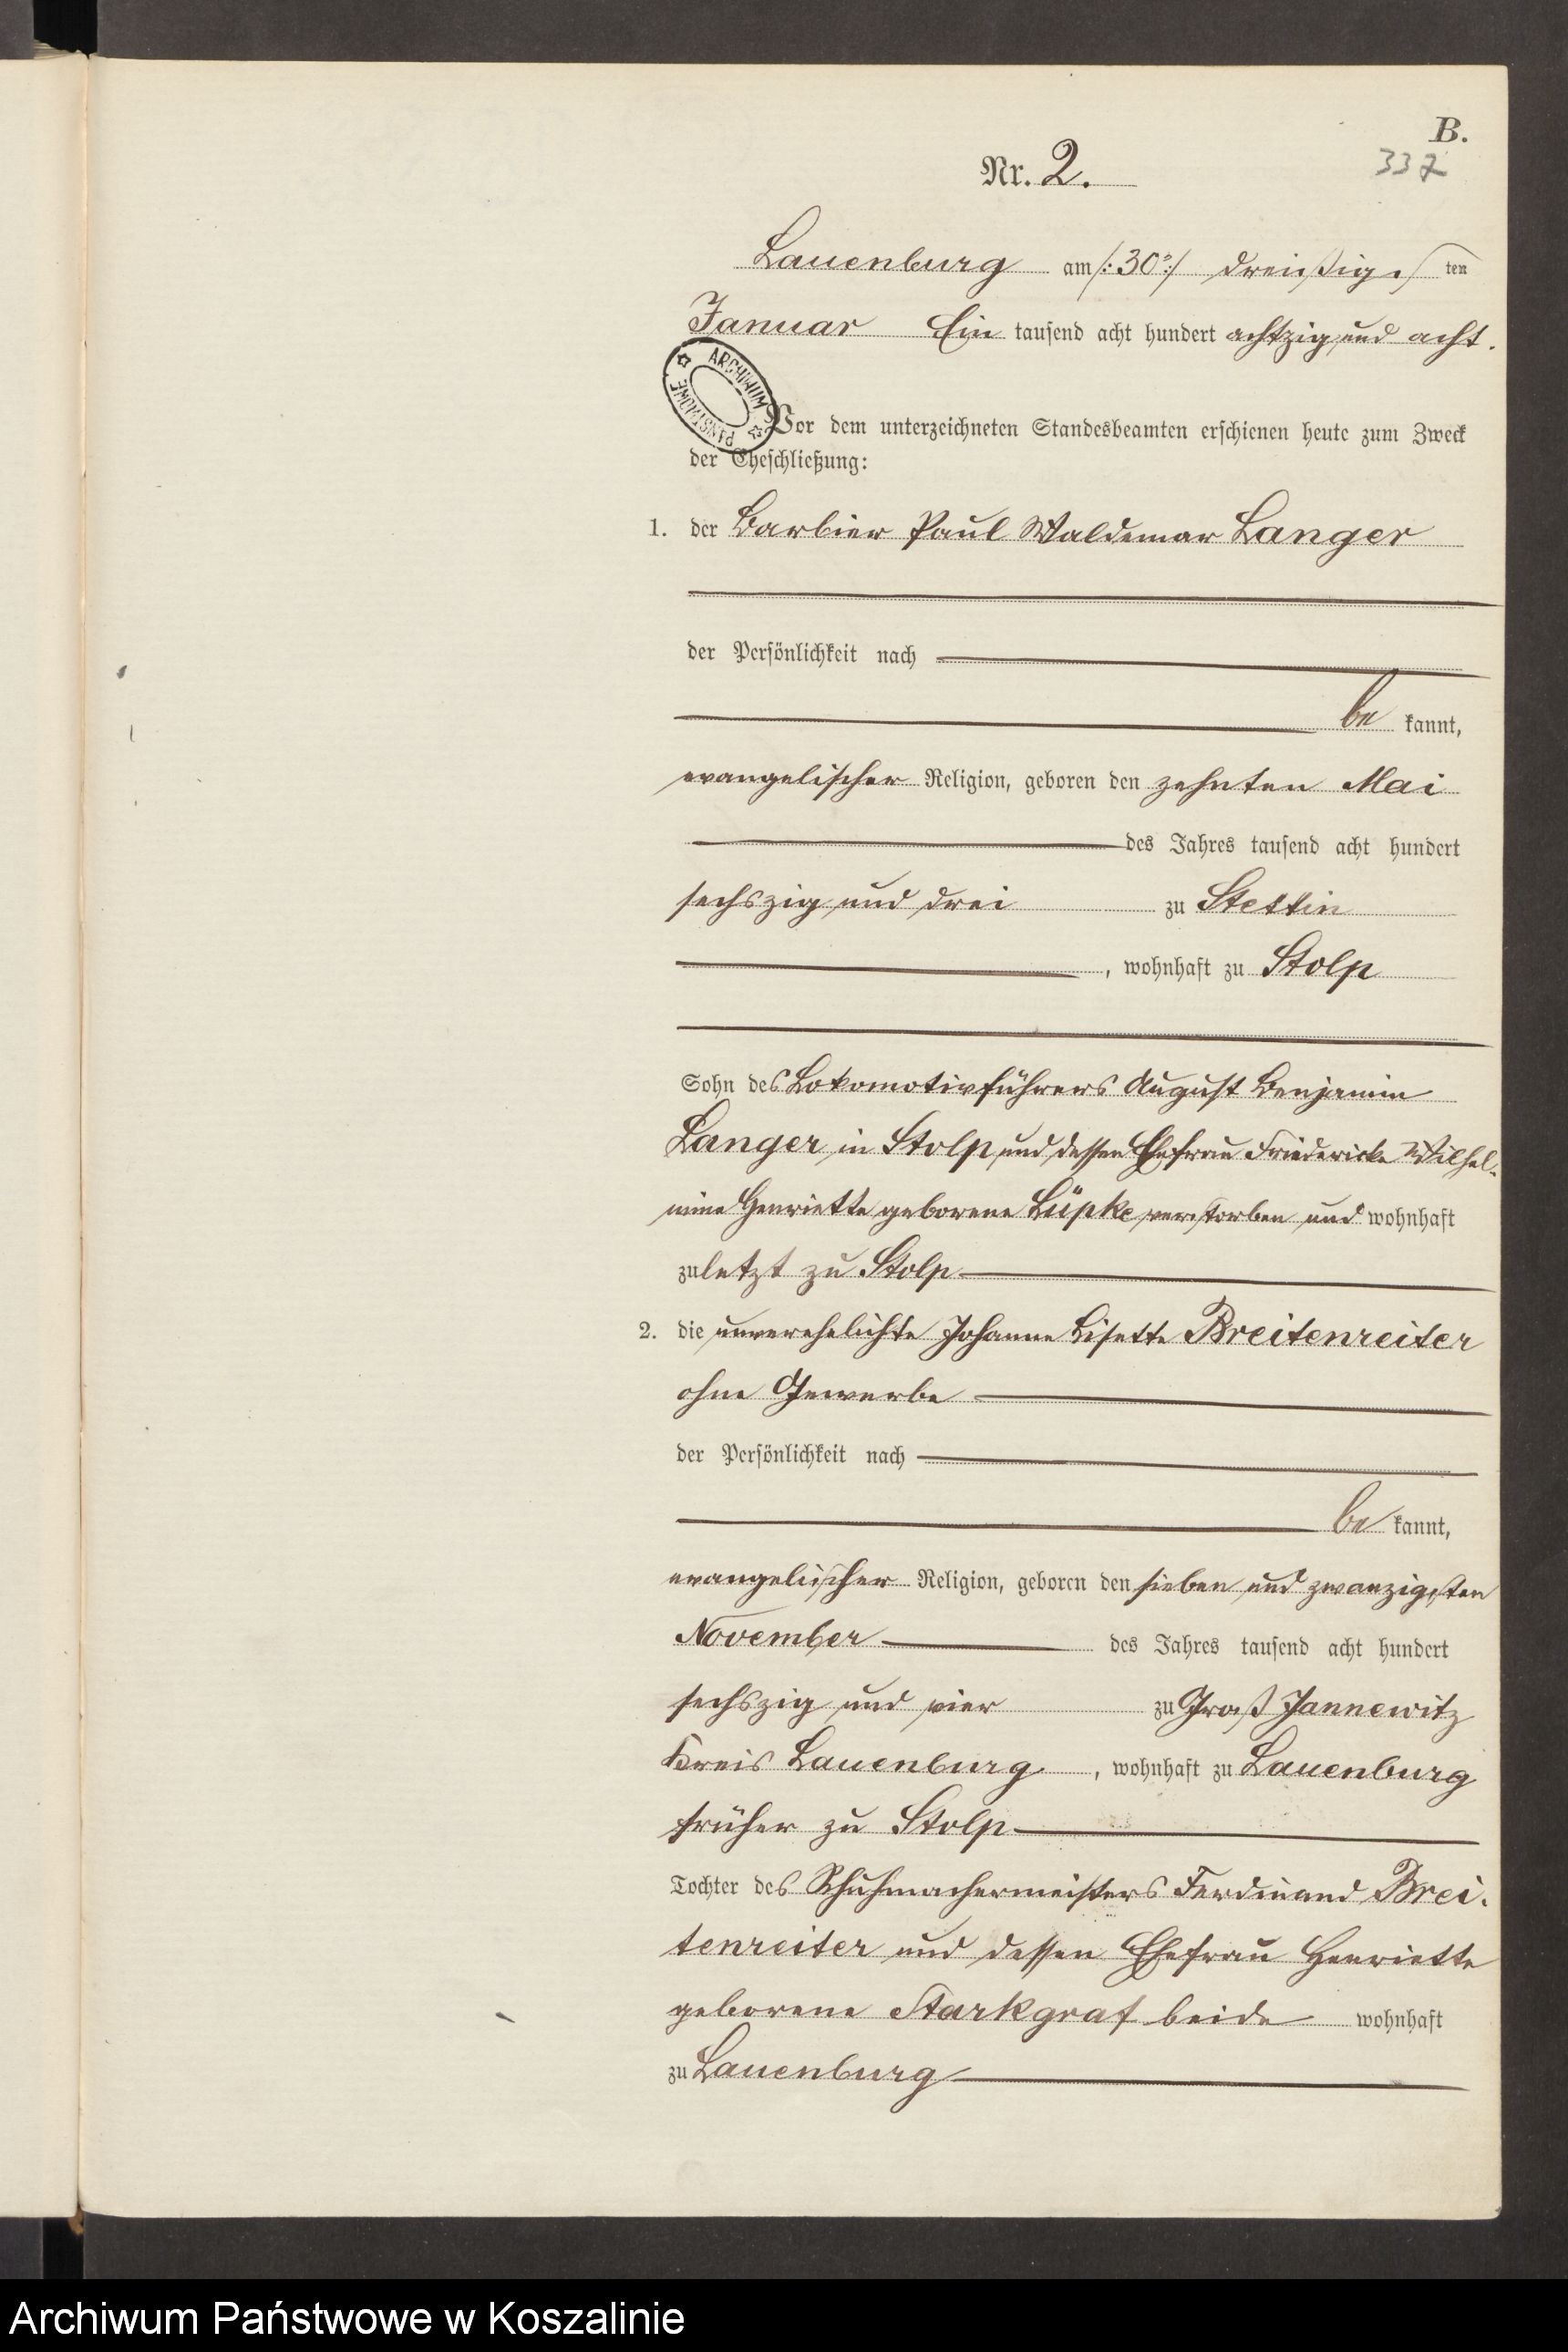 B.
337
Nr. 2.
Lauenburg am /:30:/ dreißigsten
Januar Ein tausend acht hundert achtzig und acht.
ARCHIWUM PAŃSTWOWE
Vor dem unterzeichneten Standesbeamten erschienen heute zum Zweck
der Eheschließung:
1. der Barbier Paul Waldemar Langer
der Persönlichkeit nach
be kannt,
evangelischer Religion, geboren den zehnten Mai
des Jahres tausend acht hundert
sechszig und drei zu Stettin
, wohnhaft zu Stolp
Sohn des Lokomotivführers August Benjamin
Langer in Stolp und dessen Ehefrau Friedericke Wilhel-
mine Henriette geborene Lüpke verstorben und wohnhaft
zuletzt zu Stolp
2. die unverehelichte Johanne Lisette Breitenreiter
ohne Gewerbe
der Persönlichkeit nach
be kannt,
evangelischer Religion, geboren den sieben und zwanzigsten
November des Jahres tausend acht hundert
sechszig und vier zu Groß Jannewitz
Kreis Lauenburg, wohnhaft zu Lauenburg
früher zu Stolp
Tochter des Schuhmachermeisters Ferdinand Brei-
tenreiter und dessen Ehefrau Henriette
geborene Starkgraf beide wohnhaft
zu Lauenburg
Archiwum Państwowe w Koszalinie